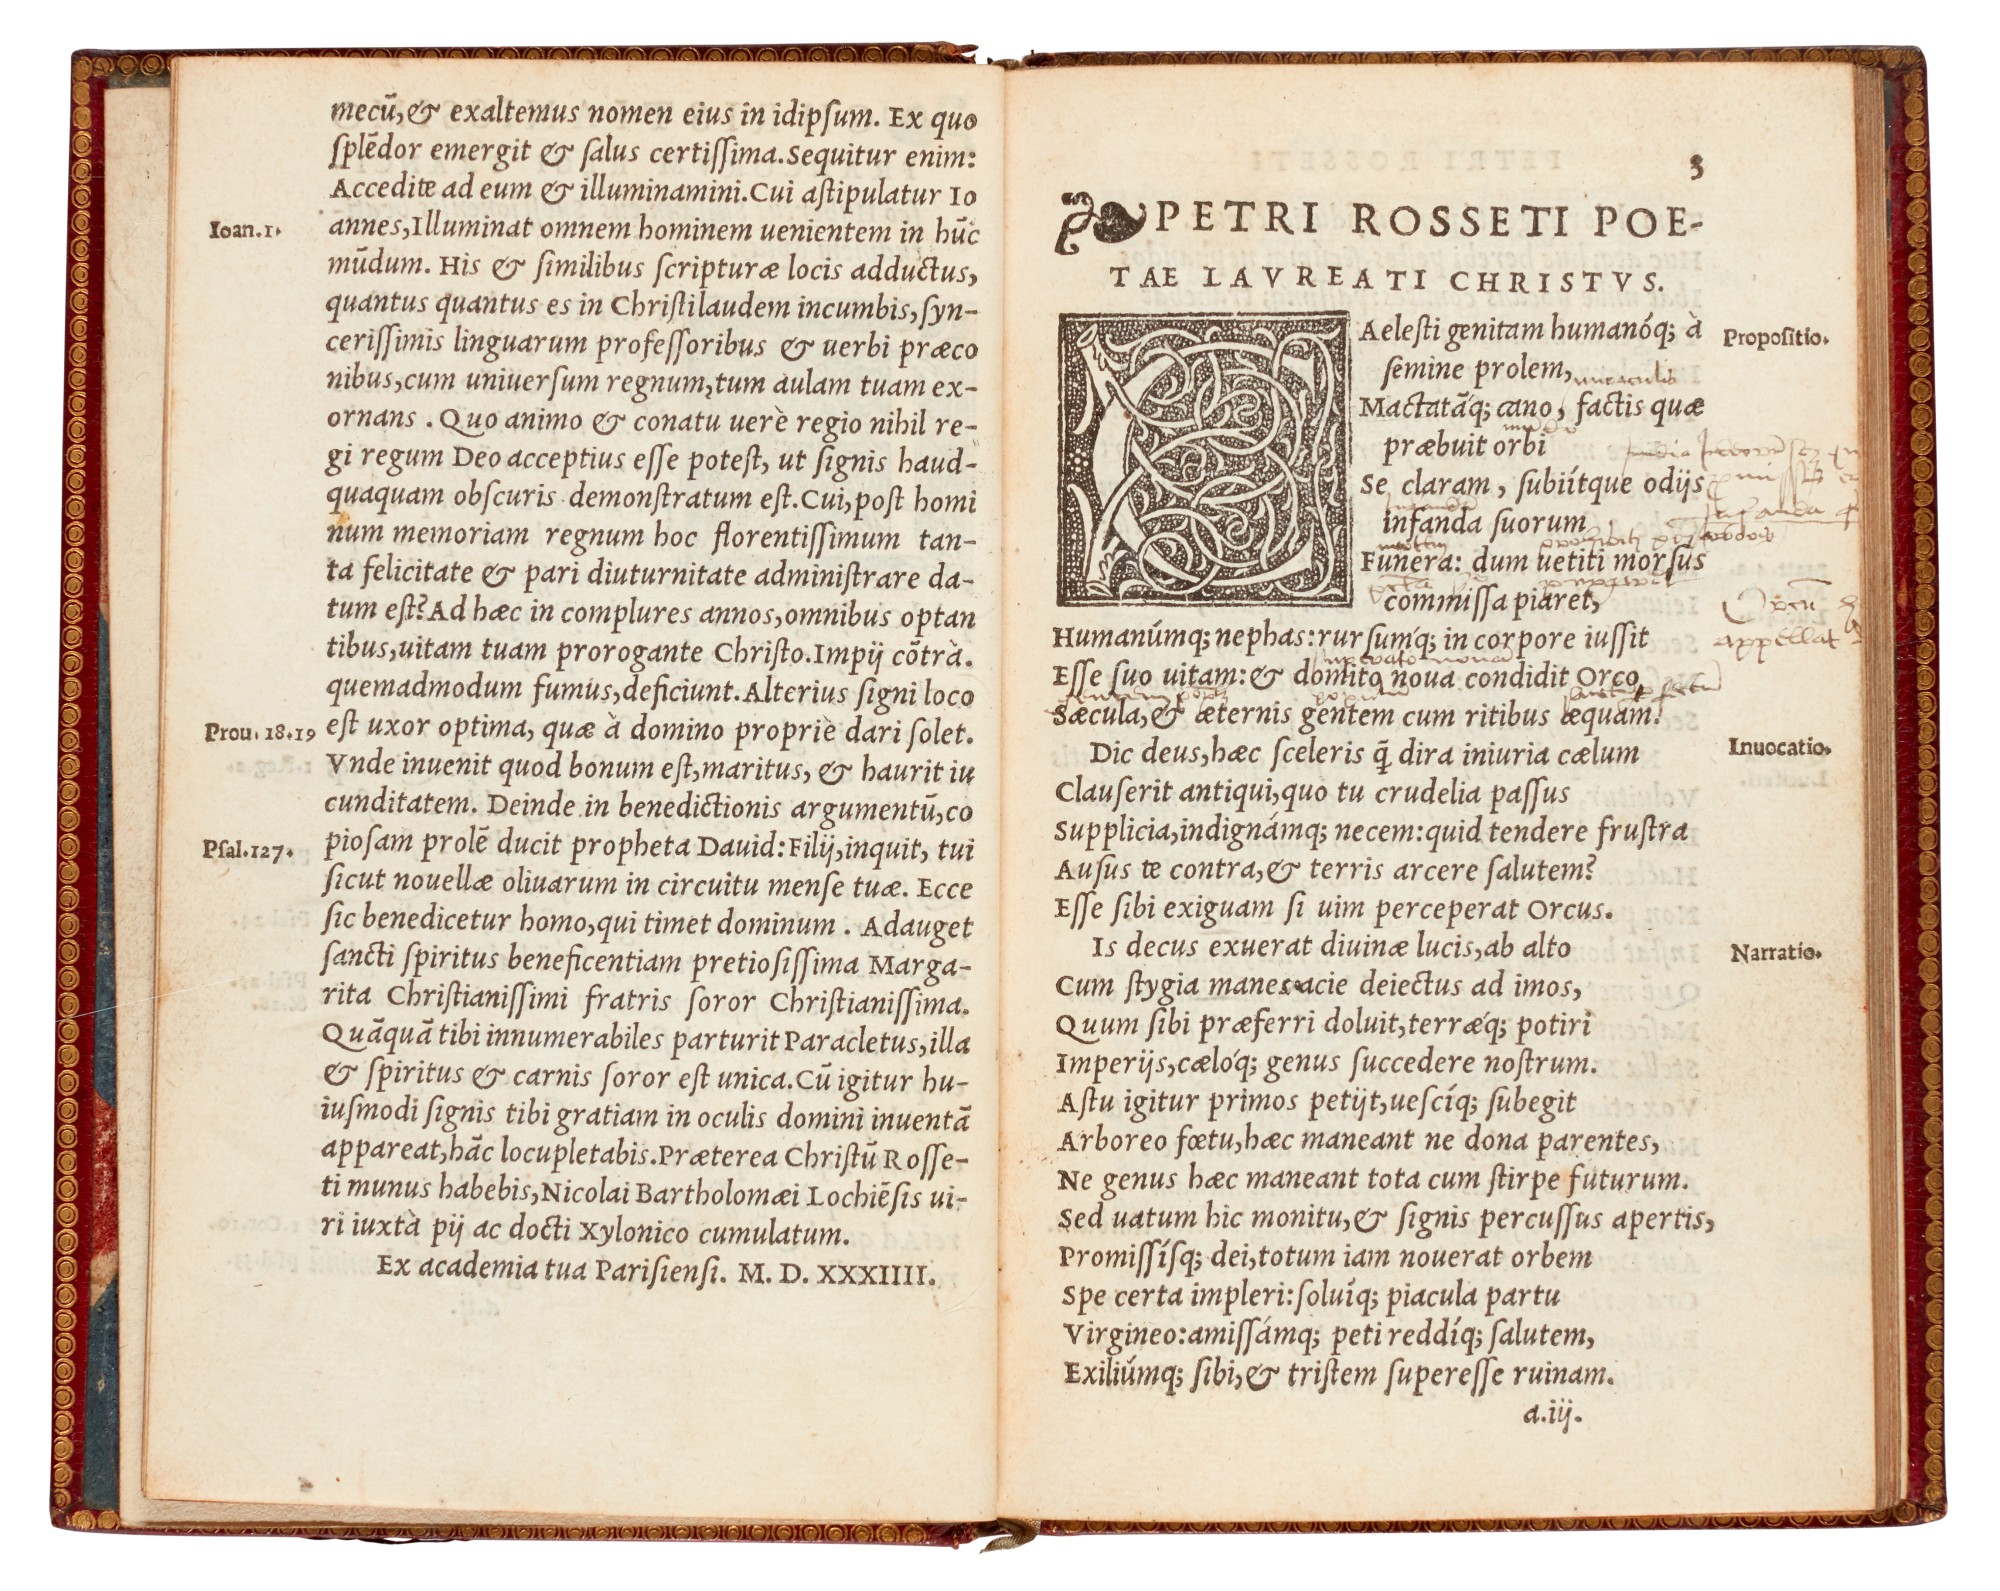 mecū, & exaltemus nomen eius in idipſum. Ex quo
ſplēdor emergit & ſalus certiſſima. Sequitur enim:
Accedite ad eum & illuminamini. Cui aſtipulatur Io
Ioan. 1.
annes, Illuminat omnem hominem uenientem in hūc
mūdum. His & ſimilibus ſcripturæ locis adductus,
quantus quantus es in Chriſti laudem incumbis, ſyn-
ceriſſimis linguarum profeſſoribus & uerbi præco
nibus, cum uniuerſum regnum, tum aulam tuam ex-
ornans. Quo animo & conatu uerè regio nihil re-
gi regum Deo acceptius eſſe poteſt, ut ſignis haud-
quaquam obſcuris demonſtratum eſt. Cui, poſt homi
num memoriam regnum hoc florentiſſimum tan-
ta felicitate & pari diuturnitate adminiſtrare da-
tum eſt? Ad hæc in complures annos, omnibus optan
tibus, uitam tuam prorogante Chriſto. Impij cōtrà.
quemadmodum fumus, deficiunt. Alterius ſigni loco
Prou. 18. 19
eſt uxor optima, quæ à domino propriè dari ſolet.
Vnde inuenit quod bonum eſt, maritus, & haurit iu
cunditatem. Deinde in benedictionis argumentū, co
Pſal. 127.
pioſam prolē ducit propheta Dauid: Filij, inquit, tui
ſicut nouellæ oliuarum in circuitu menſe tuæ. Ecce
ſic benedicetur homo, qui timet dominum. Adauget
ſancti ſpiritus beneficentiam pretioſiſſima Marga-
rita Chriſtianiſſimi fratris ſoror Chriſtianiſſima.
Quāquā tibi innumerabiles parturit Paracletus, illa
& ſpiritus & carnis ſoror eſt unica. Cū igitur hu-
iuſmodi ſignis tibi gratiam in oculis domini inuentā
appareat, hāc locupletabis. Præterea Chriſtū Roſſe-
ti munus habebis, Nicolai Bartholomæi Lochiēſis ui-
ri iuxtà pij ac docti Xylonico cumulatum.
Ex academia tua Pariſienſi. M. D. XXXIIII.
3
PETRI ROSSETI POE-
TAE LAVREATI CHRISTVS.
CAeleſti genitam humanóq; à
Propoſitio.
ſemine prolem,
miraculis
Mactatāq; cano, factis quæ
præbuit orbi
Se claram, ſubiítque odijs
infanda ſuorum
Funera: dum uetiti morſus
commiſſa piaret,
appellat
Humanúmq; nephas: rurſumq́; in corpore iuſſit
Eſſe ſuo uitam: & domito noua condidit Orco
Sæcula, & æternis gentem cum ritibus æquam.
Dic deus, hæc ſceleris q̄ dira iniuria cælum
Inuocatio.
Clauſerit antiqui, quo tu crudelia paſſus
Supplicia, indignámq; necem: quid tendere fruſtra
Auſus te contra, & terris arcere ſalutem?
Eſſe ſibi exiguam ſi uim perceperat Orcus.
Is decus exuerat diuinæ lucis, ab alto
Narratio.
Cum ſtygia manes acie deiectus ad imos,
Quum ſibi præferri doluit, terræq́; potiri
Imperijs, cælóq; genus ſuccedere noſtrum.
Aſtu igitur primos petijt, ueſcíq; ſubegit
Arboreo fœtu, hæc maneant ne dona parentes,
Ne genus hæc maneant tota cum ſtirpe futurum.
Sed uatum hic monitu, & ſignis percuſſus apertis,
Promiſſíſq; dei, totum iam nouerat orbem
Spe certa impleri: ſoluíq; piacula partu
Virgineo: amiſſámq; peti reddíq; ſalutem,
Exiliúmq; ſibi, & triſtem ſupereſſe ruinam.
a.iij.